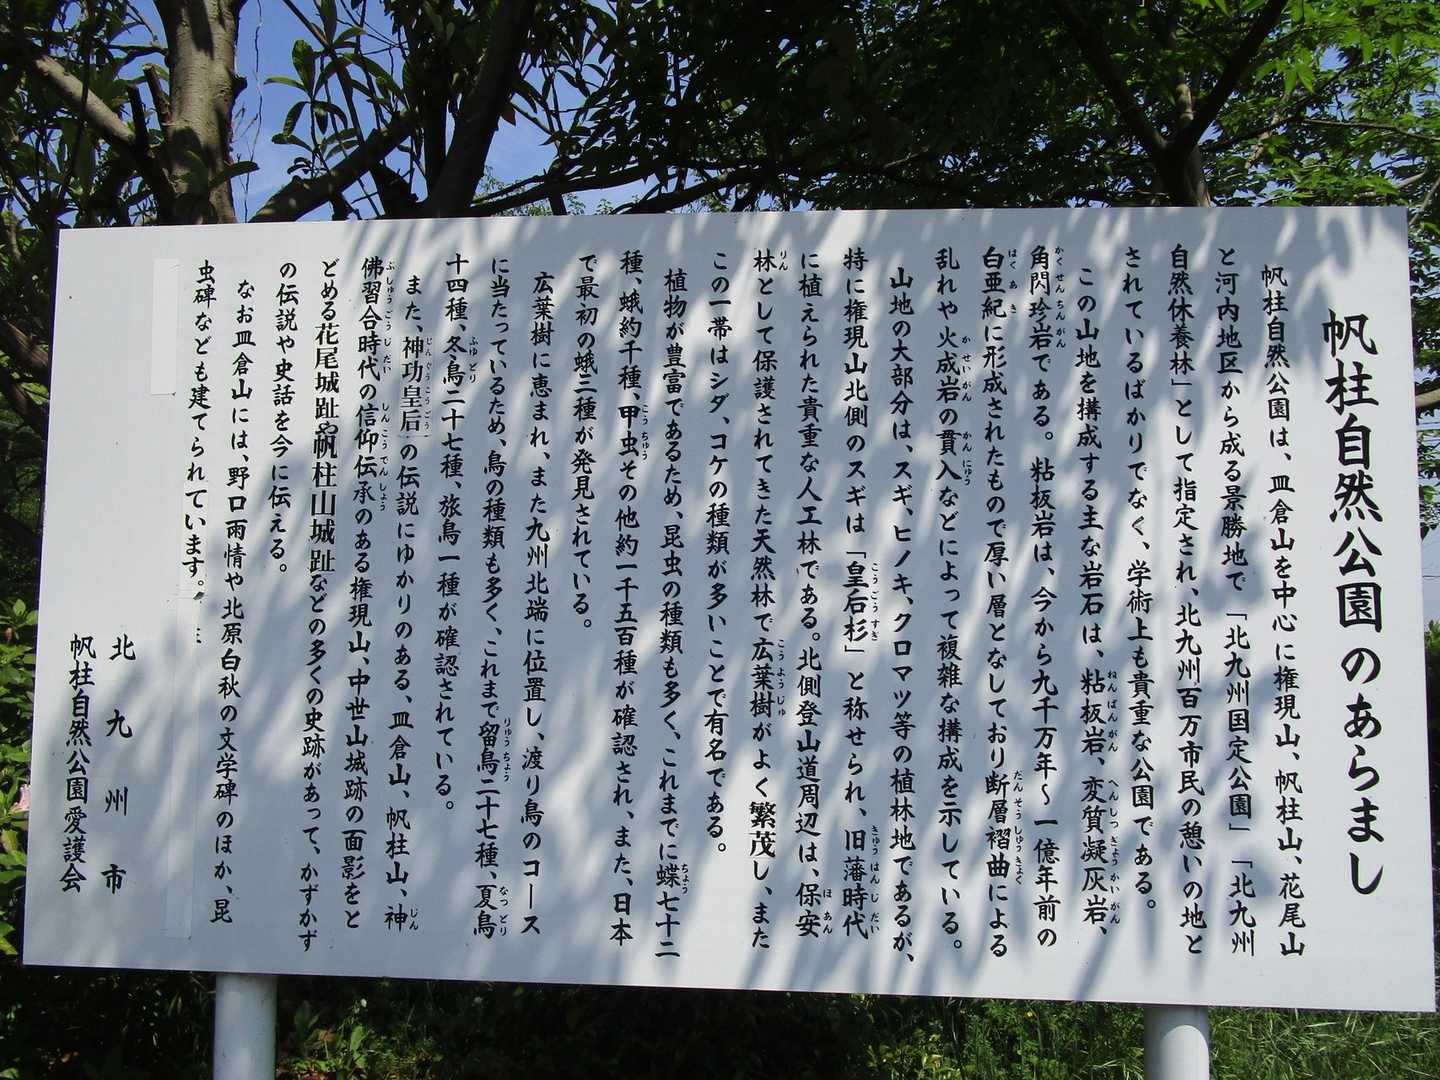 帆柱自然公園のあらまし
帆柱自然公園は、皿倉山を中心に権現山、帆柱山、花尾山
と河内地区から成る景勝地で「北九州国定公園」「北九州
自然休養林」として指定され、北九州百万市民の憩いの地と
されているばかりでなく、学術上も貴重な公園である。
この山地を構成する主な岩石は、粘板岩、変質凝灰岩、
角閃玢岩である。粘板岩は、今から九千万年～一億年前の
白亜紀に形成されたもので厚い層となしており断層褶曲による
乱れや火成岩の貫入などによって複雑な構成を示している。
山地の大部分は、スギ、ヒノキ、クロマツ等の植林地であるが、
特に権現山北側のスギは「皇后杉」と称せられ、旧藩時代
に植えられた貴重な人工林である。北側登山道周辺は、保安
林として保護されてきた天然林で広葉樹がよく繁茂し、また
この一帯はシダ、コケの種類が多いことで有名である。
植物が豊富であるため、昆虫の種類も多く、これまでに蝶七十二
種、蛾約千種、甲虫その他約一千五百種が確認され、また、日本
で最初の蛾三種が発見されている。
広葉樹に恵まれ、また九州北端に位置し、渡り鳥のコース
に当たっているため、鳥の種類も多く、これまで留鳥二十七種、夏鳥
十四種、冬鳥二十七種、旅鳥一種が確認されている。
また、神功皇后の伝説にゆかりのある、皿倉山、帆柱山、神
佛習合時代の信仰伝承のある権現山、中世山城跡の面影をと
どめる花尾城趾や帆柱山城趾などの多くの史跡があって、かずかず
の伝説や史話を今に伝える。
なお皿倉山には、野口雨情や北原白秋の文学碑のほか、昆
虫碑なども建てられています。
北九州市
帆柱自然公園愛護会